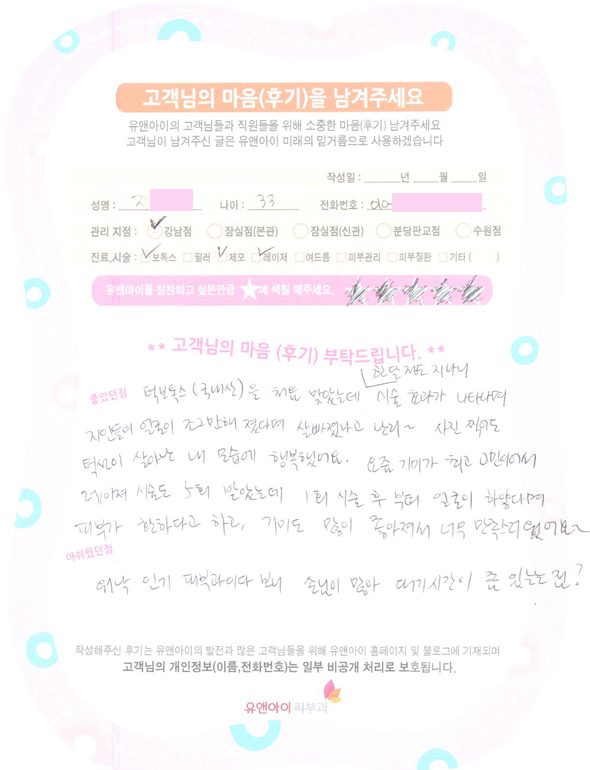 고객님의 마음(후기)을 남겨주세요
유앤아이의 고객님들과 직원들을 위해 소중한 마음(후기) 남겨주세요
고객님이 남겨주신 글은 유앤아이 미래의 밑거름으로 사용하겠습니다
작성일 : ______년 _____월 _____일
성명 : 지 나이 : 33 전화번호 : 010-
관리 지점 : 강남점 잠실점(본관) 잠실점(신관) 분당판교점 수원점
진료,시술 : 보톡스 필러 제모 레이저 여드름 피부관리 피부질환 기타 ( )
유앤아이를 칭찬하고 싶은만큼 ★에 색칠 해주세요.
** 고객님의 마음 (후기) 부탁드립니다. **
한달 정도 지나니
좋았던점 턱보톡스 (국내산)을 처음 맞았는데 시술 효과가 나타나며
지인들이 얼굴이 조그만해 졌다며 살빠졌냐고 난리~ 사진 찍어도
턱선이 살아난 내 모습에 행복했어요. 요즘 기미가 최고 고민이어서
레이저 시술도 5회 받았는데 1회 시술 후 부터 얼굴이 하얗다며
피부가 환하다고 하고, 기미도 많이 좋아져서 너무 만족스러웠어요~
아쉬웠던점
워낙 인기 피부과이다 보니 손님이 많아 대기시간이 좀 있는 점?
작성해주신 후기는 유앤아이의 발전과 많은 고객님들을 위해 유앤아이 홈페이지 및 블로그에 기재되며
고객님의 개인정보(이름,전화번호)는 일부 비공개 처리로 보호됩니다.
유앤아이 피부과